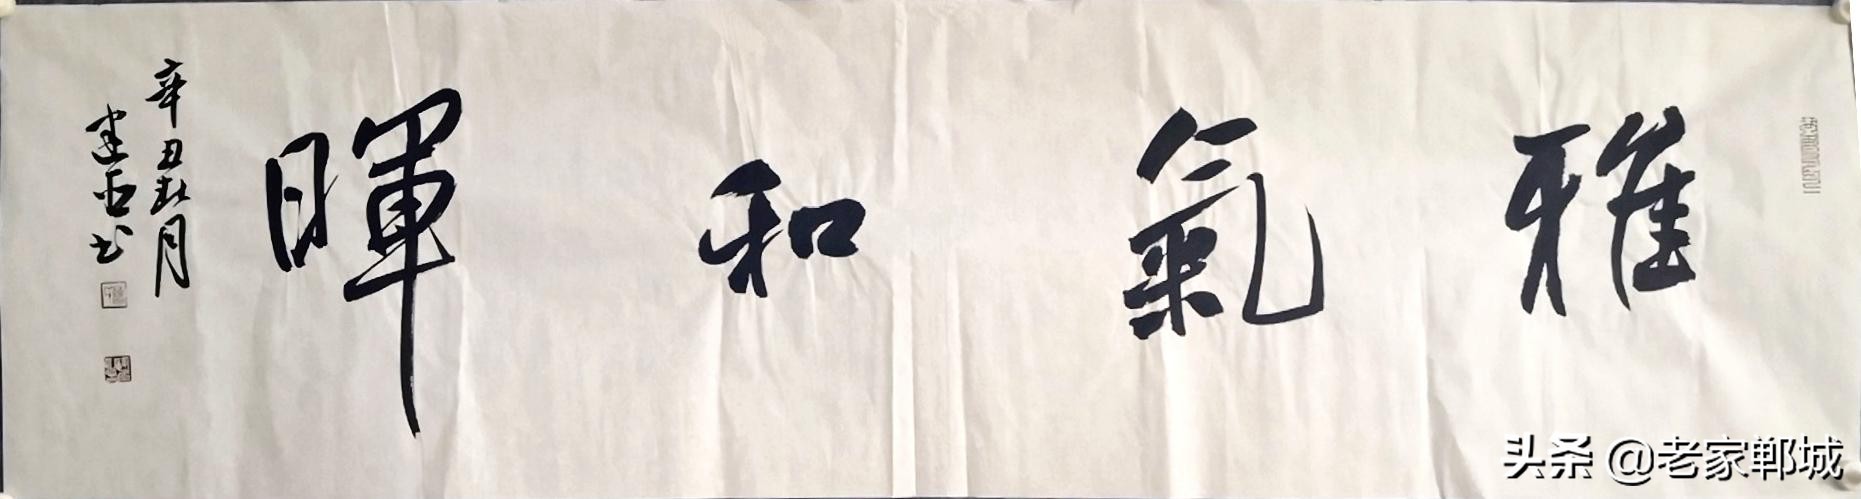 雅氣和暉
辛丑秋月
书
头条 @老家郸城